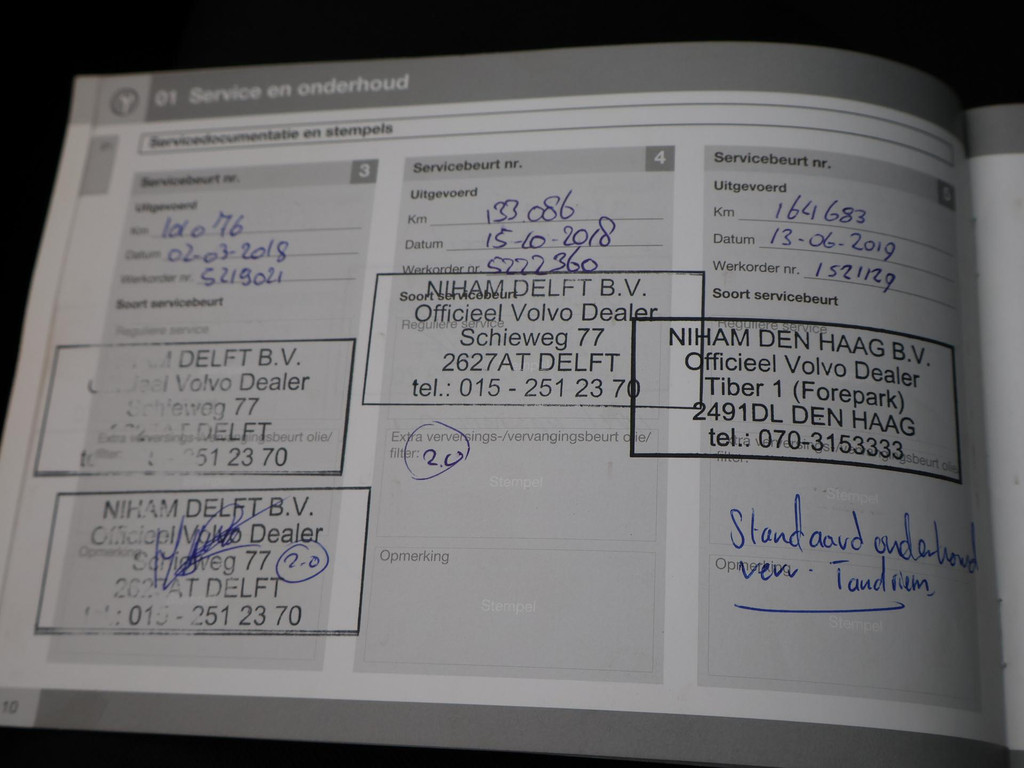 01 Service en onderhoud
Servicedocumentatie en stempels
Servicebeurt nr. 3
Uitgevoerd
Km
Datum 02-03-2018
Werkorder nr. 5219021
Soort servicebeurt
Reguliere service
DELFT B.V.
Volvo Dealer
Schieweg 77
DELFT
51 23 70
Extra verversings-/vervangingsbeurt olie/
filter:
NIHAM DELFT B.V.
Officieel Volvo Dealer
Schieweg 77 2.0
2627AT DELFT
tel.: 015 - 251 23 70
Opmerking
Servicebeurt nr. 4
Uitgevoerd
Km 133.086
Datum 15-10-2018
Werkorder nr. 5222360
Soort servicebeurt
Reguliere service
NIHAM DELFT B.V.
Officieel Volvo Dealer
Schieweg 77
2627AT DELFT
tel.: 015 - 251 23 70
Extra verversings-/vervangingsbeurt olie/
filter: 2.0
Stempel
Opmerking
Stempel
Servicebeurt nr. 5
Uitgevoerd
Km 164683
Datum 13-06-2019
Werkorder nr. 1521129
Soort servicebeurt
Reguliere service
NIHAM DEN HAAG B.V.
Officieel Volvo Dealer
Tiber 1 (Forepark)
2491DL DEN HAAG
tel.: 070-3153333
Extra verversings-/vervangingsbeurt olie/
filter:
Stempel
Standaard onderhoud
Opmerking
verv. Tandriem
Stempel
10